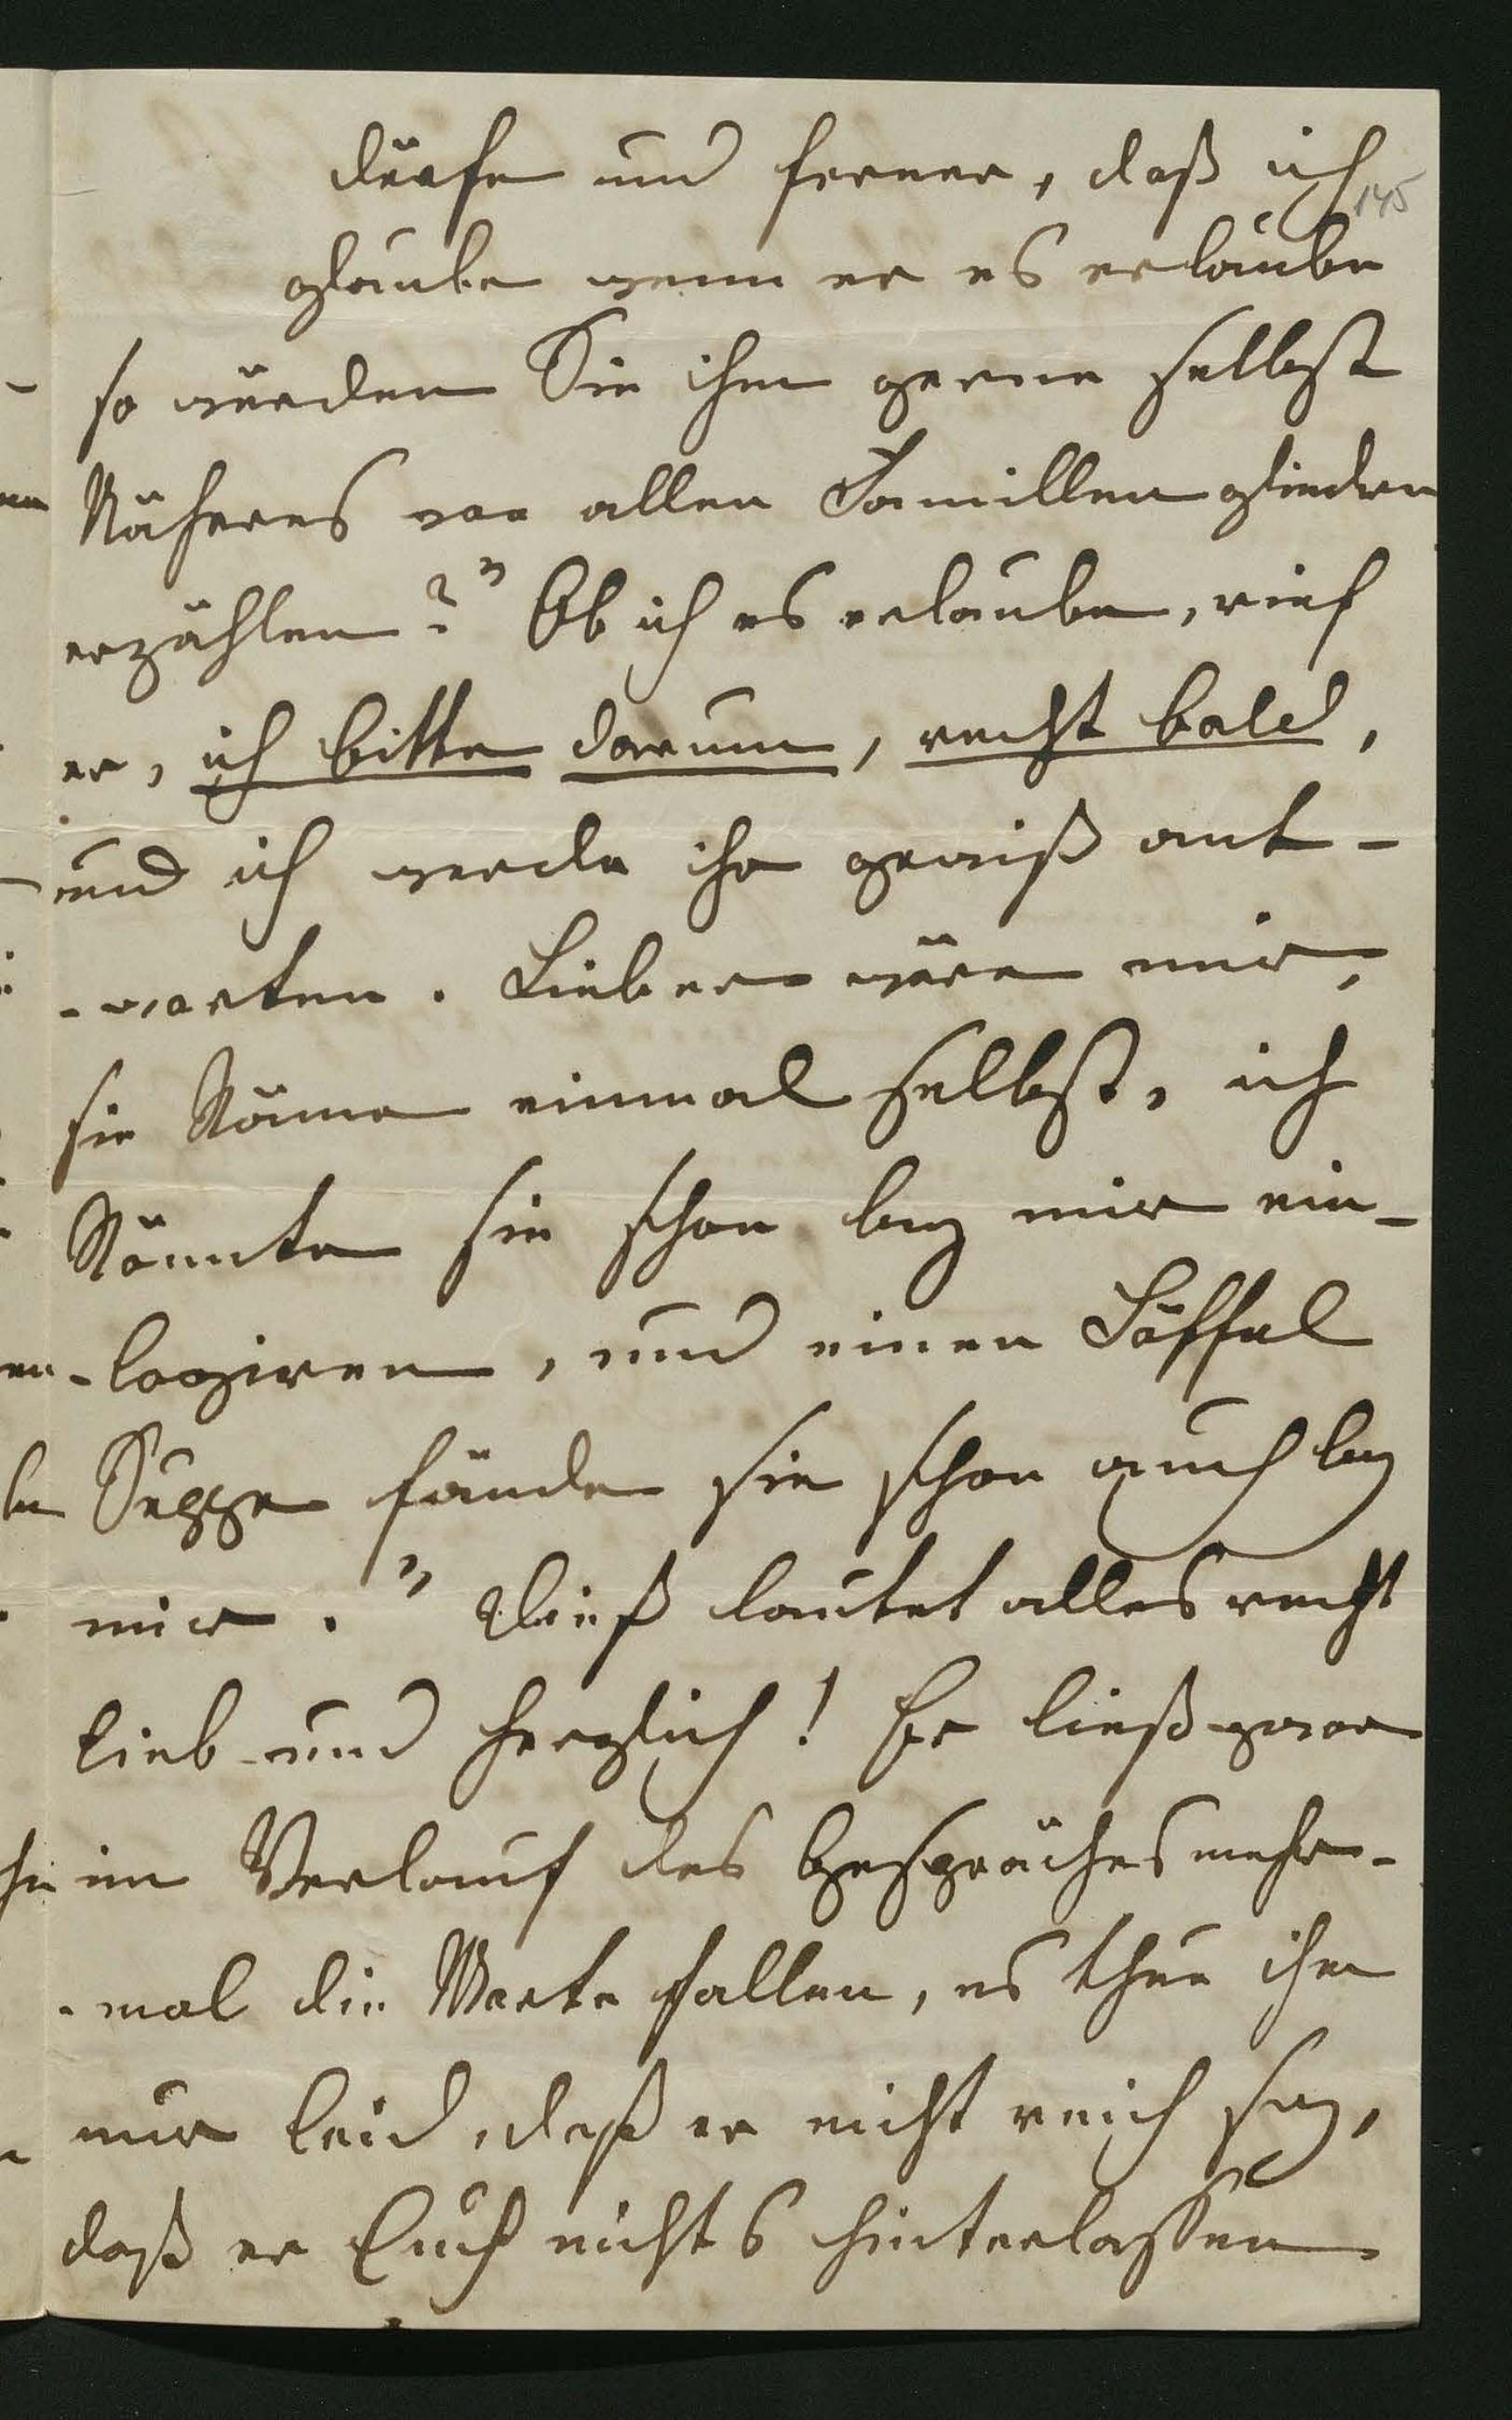 dürfe und ferner, daß ich
145
glaube wenn er es erlaube
so würden Sie ihm gerne selbst
Näheres von allen Familiengliedern
erzählen?" Ob ich es erlaube, rief
er, ich bitte darum, recht bald,
und ich werde ihr gewiß ant-
-worten. Lieber wäre mir,
sie käme einmal selbst, ich
könnte sie schon bey mir ein-
-logiren, und einen Löffel
Suppe fände sie schon auch bey
mir." Dieß lautet alles recht
lieb und herzlich! Er ließ zwar
im Verlauf des Gespräches mehr-
-mal die Worte fallen, es thue ihm
nur leid, daß er nicht reich sey,
daß er Euch nichts hinterlassen